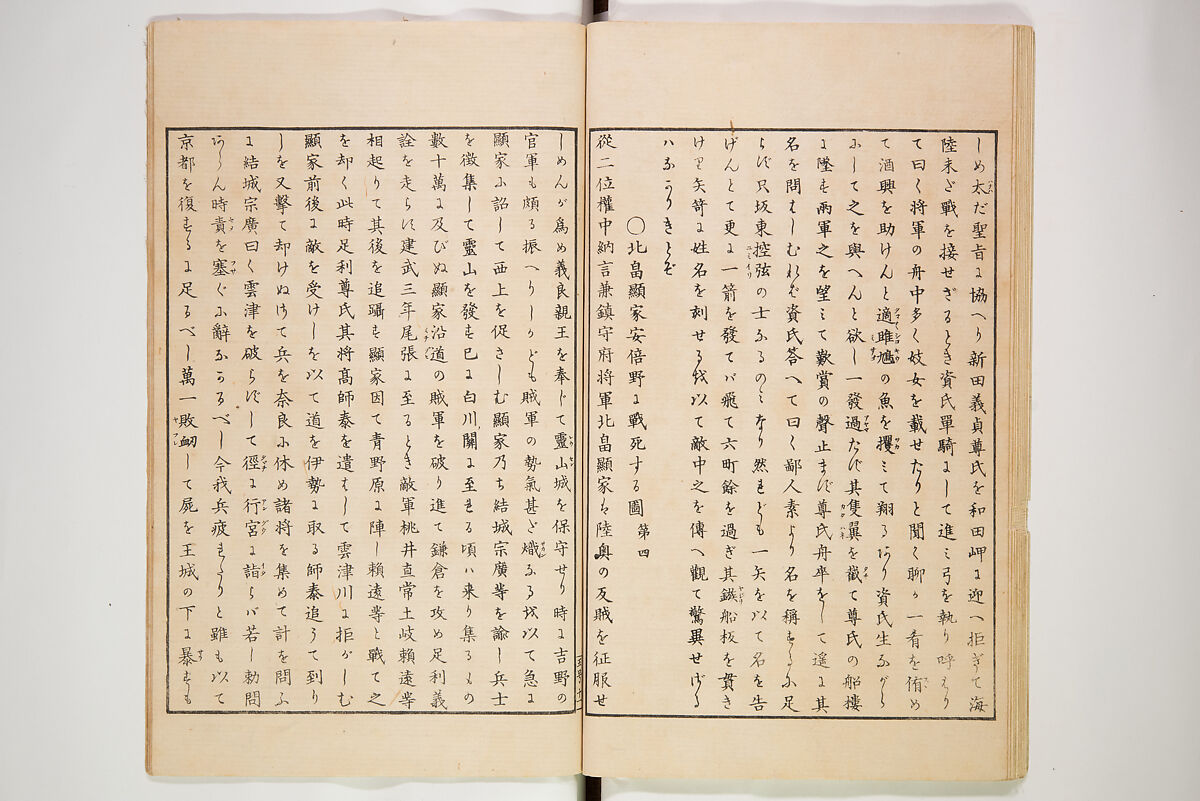 しめ太だ聖旨に協へり新田義貞尊氏を和田岬に迎へ拒ぎて海
陸未だ戰を接せざるとき資氏單騎にして進み弓を執り呼はり
て曰く将軍の舟中多く妓女を載せたりと聞く聊か一肴を侑め
て酒興を助けんと適雎鳩の魚を攫みて翔るあり資氏生ながら
にして之を與へんと欲し一發過たず其隻翼を截て尊氏の船樓
に墜す兩軍之を望みて歎賞の聲止まず尊氏舟卒をして遙に其
名を問はしむれば資氏答へて曰く鄙人素より名を稱するに足
らず只坂東控弦の士なるのみなり然れども一矢を以て名を告
げんとて更に一箭を發てバ飛て六町餘を過ぎ其鏃船板を貫き
けり矢笴に姓名を刻せるを以て敵中之を傳へ觀て驚異せざる
ハなかりきとぞ
○北畠顯家安倍野に戰死する圖 第四
從二位權中納言兼鎮守府将軍北畠顯家は陸奥の反賊を征服せ
しめんが爲め義良親王を奉じて靈山城を保守せり時に吉野の
官軍も頗る振へりしかども賊軍の勢氣甚だ熾なるを以て急に
顯家に詔して西上を促さしむ顯家乃ち結城宗廣等を諭し兵士
を徴集して靈山を發す已に白川關に至れる頃ハ来り集るもの
數十萬に及びぬ顯家沿道の賊軍を破り進て鎌倉を攻め足利義
詮を走らす建武三年尾張に至るとき敵軍桃井直常土岐賴遠等
相起りて其後を追躡す顯家因て青野原に陣し賴遠等と戰て之
を却く此時足利尊氏其将髙師泰を遣はして雲津川に拒がしむ
顯家前後に敵を受けしを以て道を伊勢に取る師泰追うて到り
しを又擊て却けぬはて兵を奈良に休め諸将を集めて計を問ふ
に結城宗廣曰く雲津を破らずして徑に行宮に詣らバ若し勅問
あらん時責を塞ぐに辭なかるべし今我兵疲れたりと雖も以て
京都を復するに足るべし萬一敗衂して屍を王城の下に暴すも